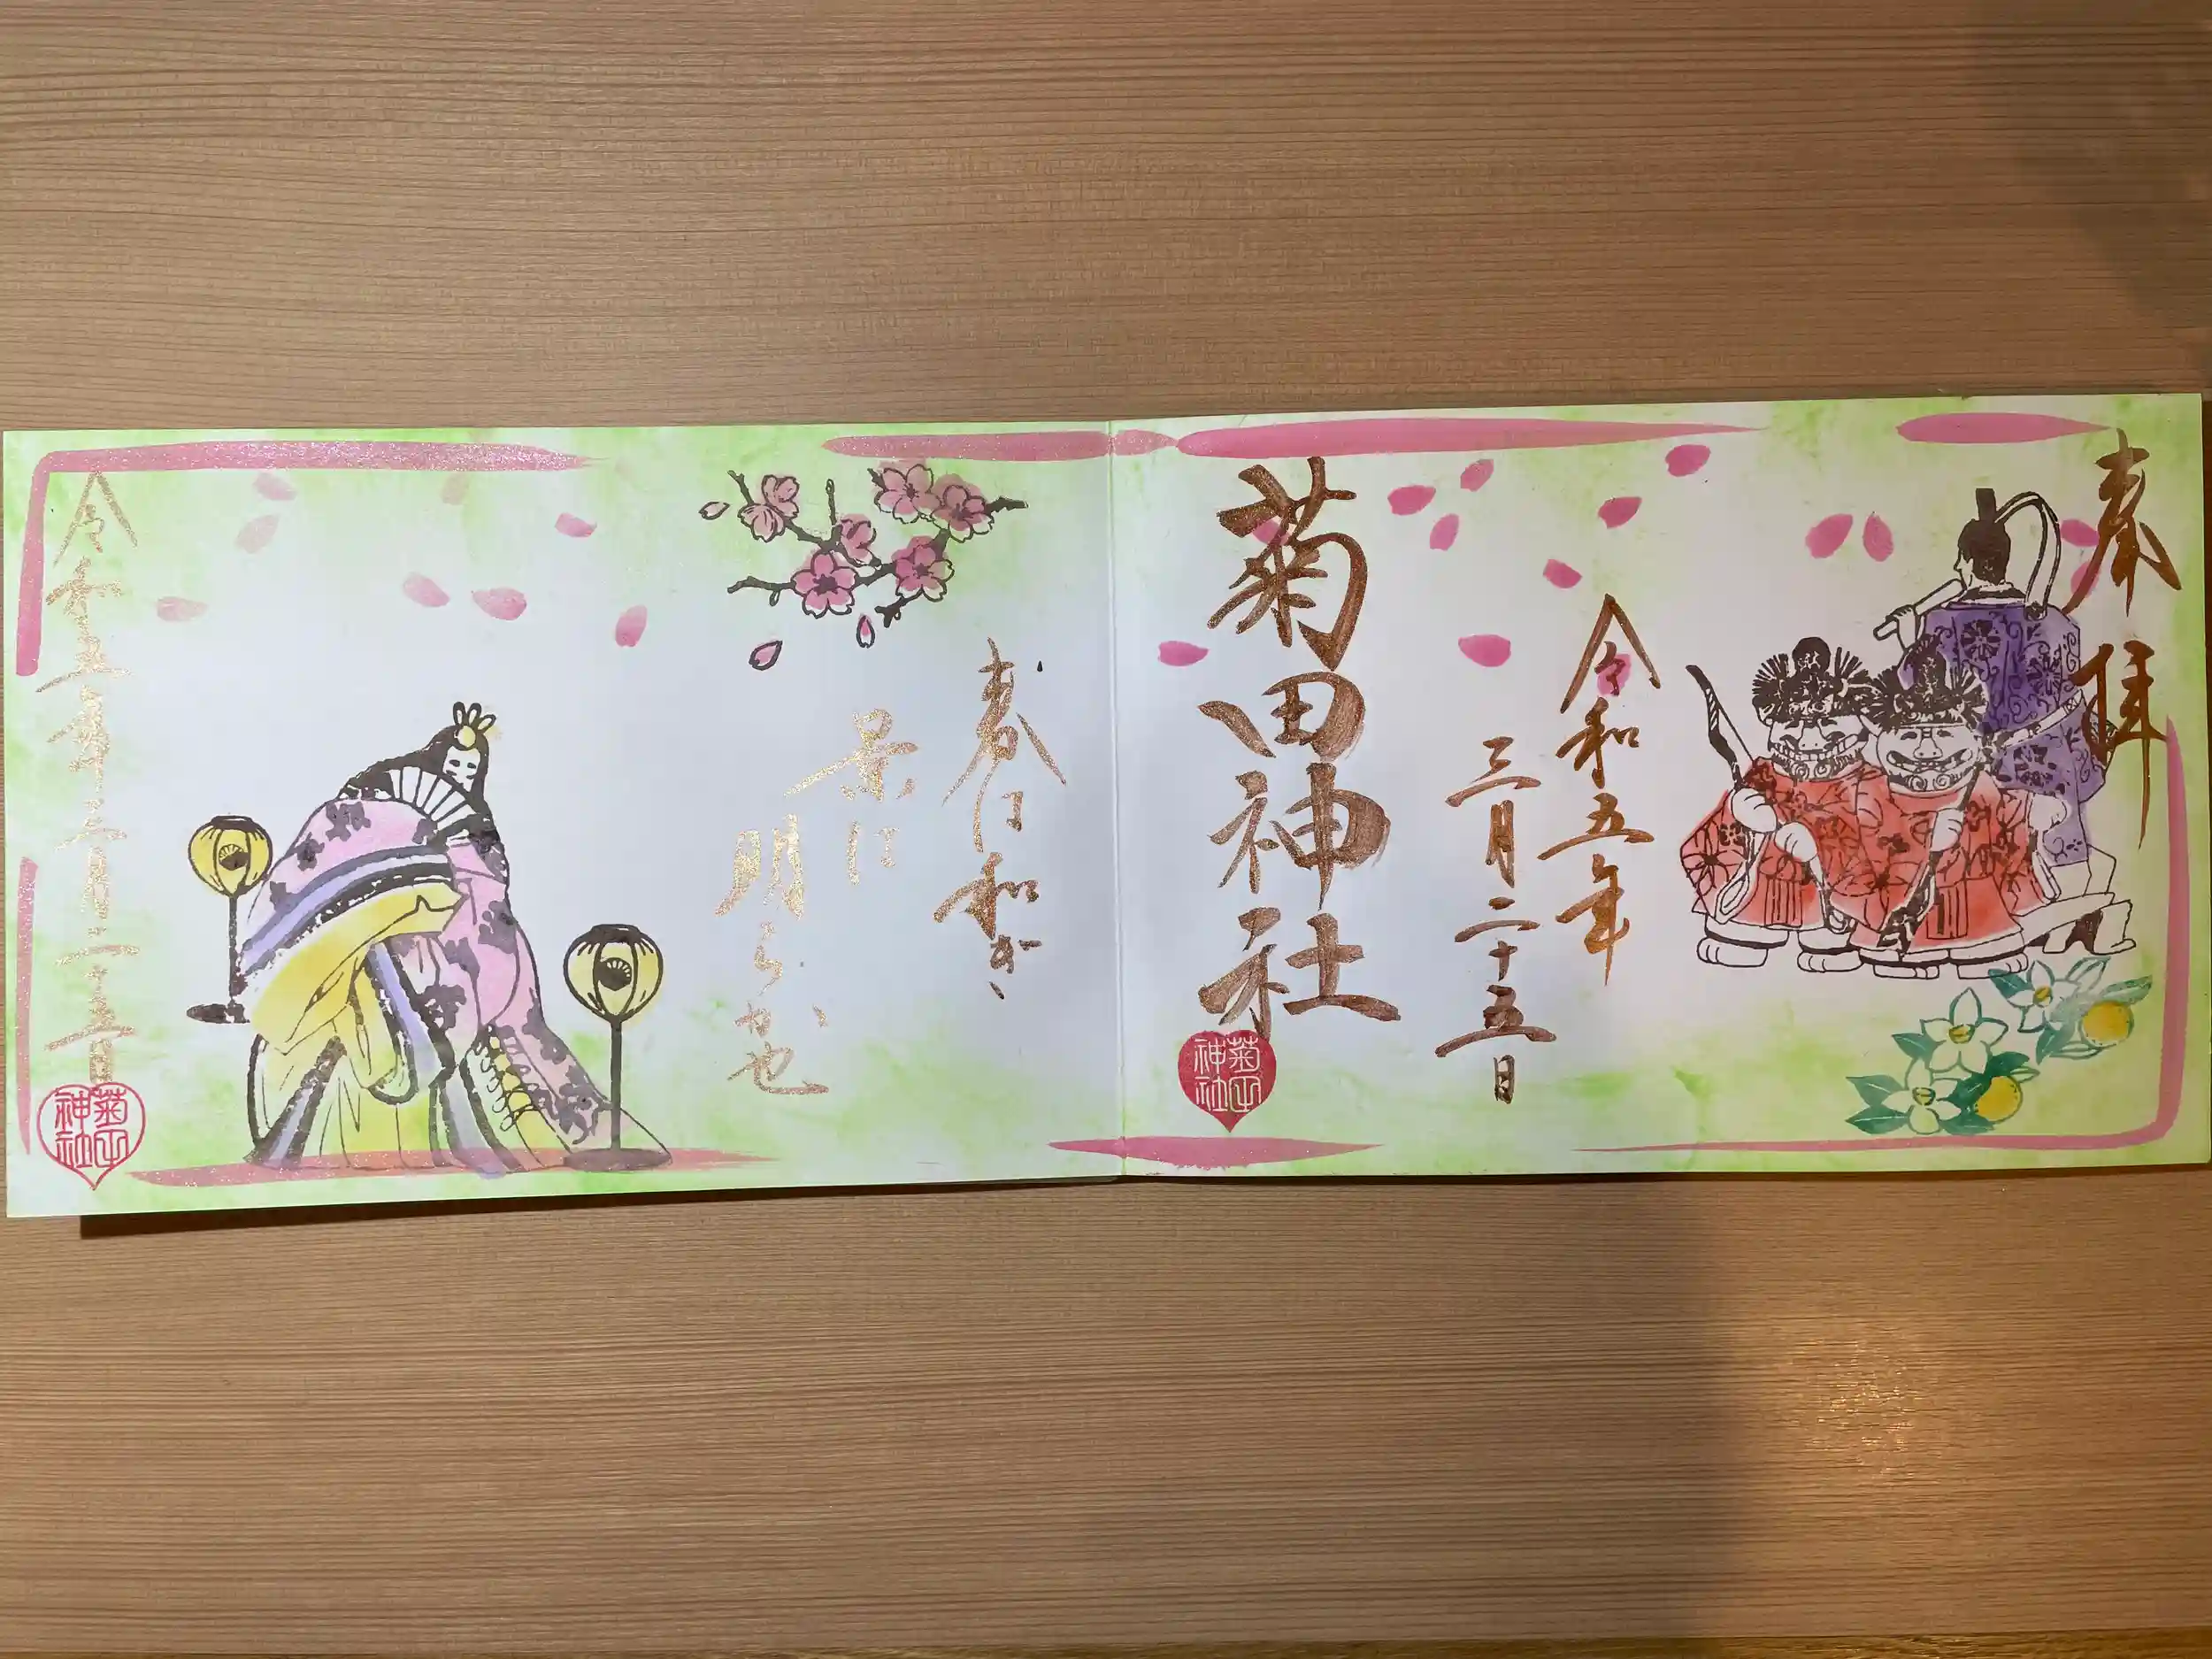 奉拝
令和五年
三月二十五日
菊田神社
菊田
神社
春は和ぎ
景は
明らか也
令和五年三月二十五日
菊田
神社